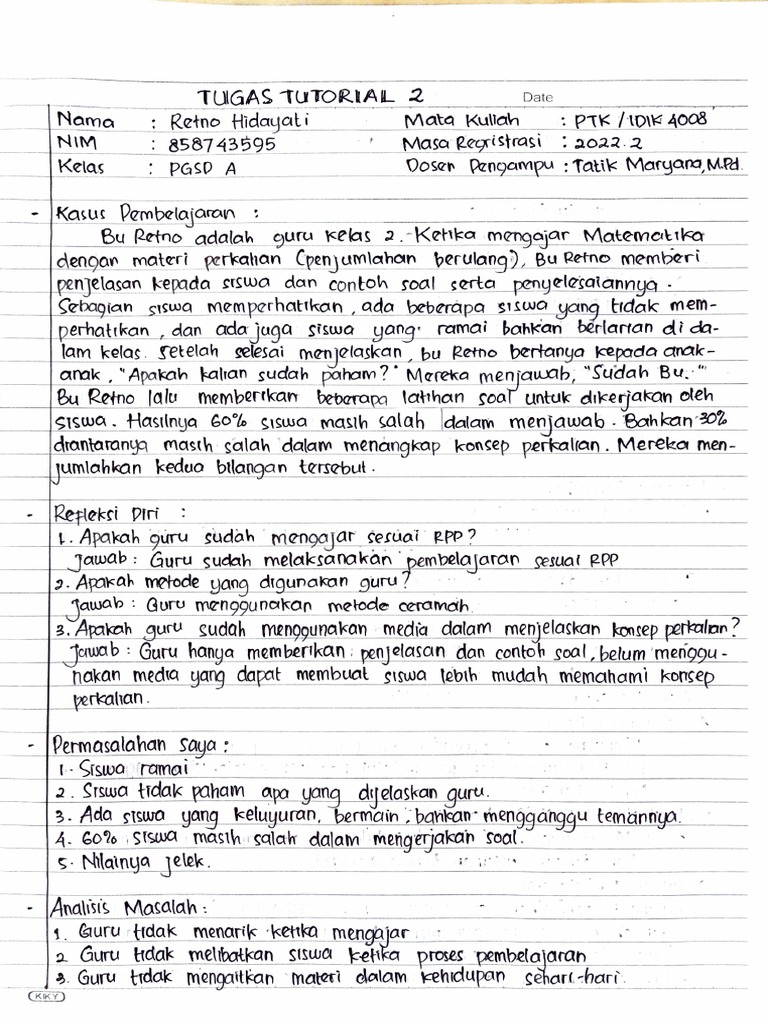 TUGAS TUTORIAL 2 Date
Nama : Retno Hidayati Mata Kuliah : PTK / IDIK 4008
NIM : 858743595 Masa Regristrasi : 2022.2
Kelas : PGSD A Dosen Pengampu : Tatik Maryana, M.Pd.
- Kasus Pembelajaran :
Bu Retno adalah guru kelas 2. Ketika mengajar Matematika
dengan materi perkalian (penjumlahan berulang), Bu Retno memberi
penjelasan kepada siswa dan contoh soal serta penyelesaiannya.
Sebagian siswa memperhatikan, ada beberapa siswa yang tidak mem-
perhatikan, dan ada juga siswa yang ramai bahkan berlarian di da-
lam kelas. Setelah selesai menjelaskan, bu Retno bertanya kepada anak-
anak, "Apakah kalian sudah paham?" Mereka menjawab, "Sudah Bu.."
Bu Retno lalu memberikan beberapa latihan soal untuk dikerjakan oleh
siswa. Hasilnya 60% siswa masih salah dalam menjawab. Bahkan 30%
diantaranya masih salah dalam menangkap konsep perkalian. Mereka men-
jumlahkan kedua bilangan tersebut.
- Refleksi Diri :
1. Apakah guru sudah mengajar sesuai RPP?
Jawab : Guru sudah melaksanakan pembelajaran sesuai RPP
2. Apakah metode yang digunakan guru?
Jawab : Guru menggunakan metode ceramah.
3. Apakah guru sudah menggunakan media dalam menjelaskan konsep perkalian?
Jawab : Guru hanya memberikan penjelasan dan contoh soal, belum menggu-
nakan media yang dapat membuat siswa lebih mudah memahami konsep
perkalian.
- Permasalahan Saya :
1. Siswa ramai
2. Siswa tidak paham apa yang dijelaskan guru.
3. Ada siswa yang keluyuran, bermain, bahkan mengganggu temannya.
4. 60% siswa masih salah dalam mengerjakan soal.
5. Nilainya jelek.
- Analisis Masalah :
1. Guru tidak menarik ketika mengajar
2. Guru tidak melibatkan siswa ketika proses pembelajaran
3. Guru tidak mengaitkan materi dalam kehidupan sehari-hari.
KIKY